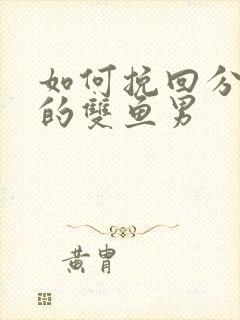 如何挽回分
的雙鱼男
黄胄